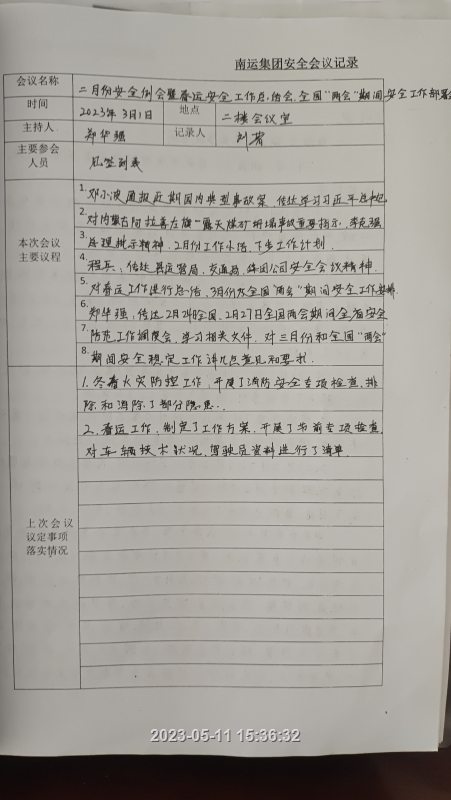 南运集团安全会议记录
会议名称 二月份安全例会暨春运安全工作总结会、全国"两会"期间安全工作部署
时间 2023年3月1日 地点 二楼会议室
主持人 郑华强 记录人 刘
主要参会人员 见签到表
本次会议主要议程
1. 邓小波通报近期国内典型事故案 传达学习习近平总书记
2. 对内蒙古阿拉善左旗一露天煤矿坍塌事故重要指示、李克强
3. 总理批示精神、2月份工作小结、下步工作计划.
4. 程兵:传达县运管局、交通局、集团公司安全会议精神.
5. 对春运工作进行总结,3月份及全国"两会"期间安全工作
6. 郑华强:传达2月24日全国、2月27日全国两会期间全省安全
7. 防范工作调度会,学习相关文件.对三月份和全国"两会"
8. 期间安全稳定工作讲几点意见和要求.
上次会议议定事项落实情况
1. 冬春火灾防控工作,开展了消防安全专项检查,排
除和消除了部分隐患.
2. 春运工作,制定了工作方案,开展了节前专项检查,
对车辆技术状况,驾驶员资料进行了清单.
2023-05-11 15:36:32